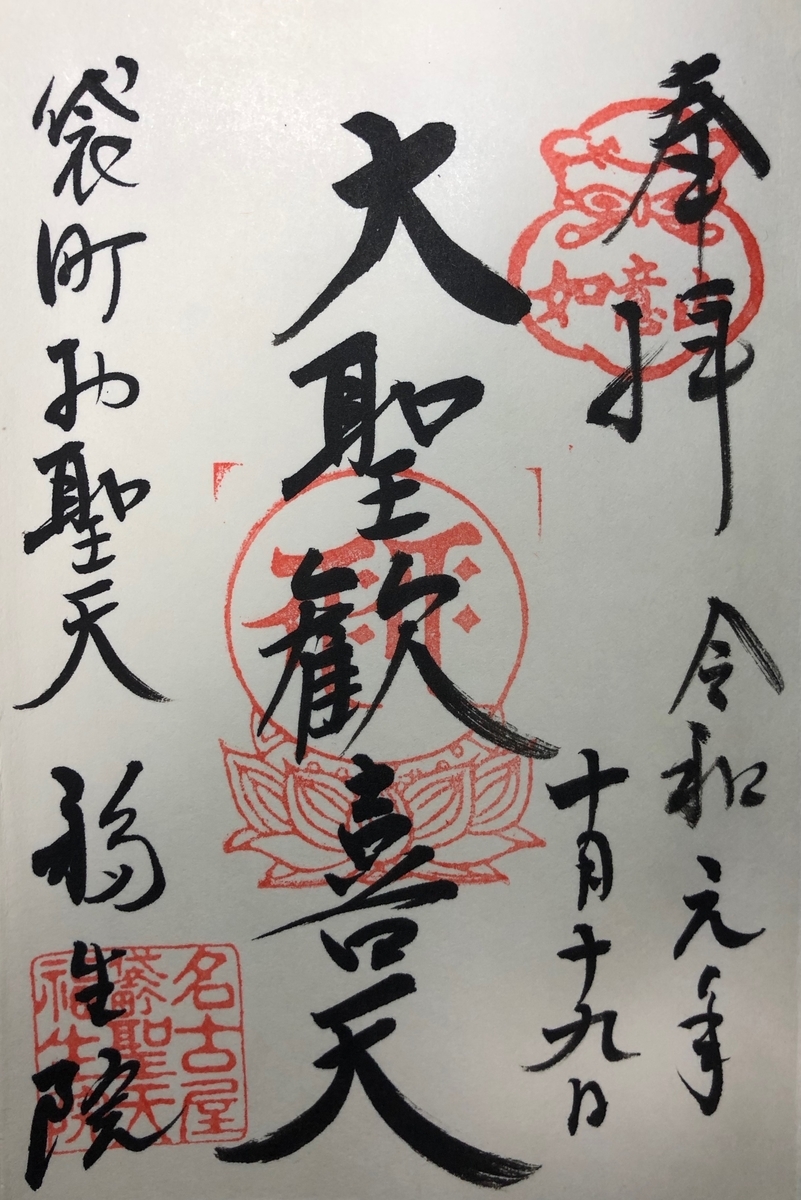 奉拝
令和元年
十月十九日
大聖歓喜天
袋町お聖天
福生院
如意
名古屋
袋町聖天
福生院